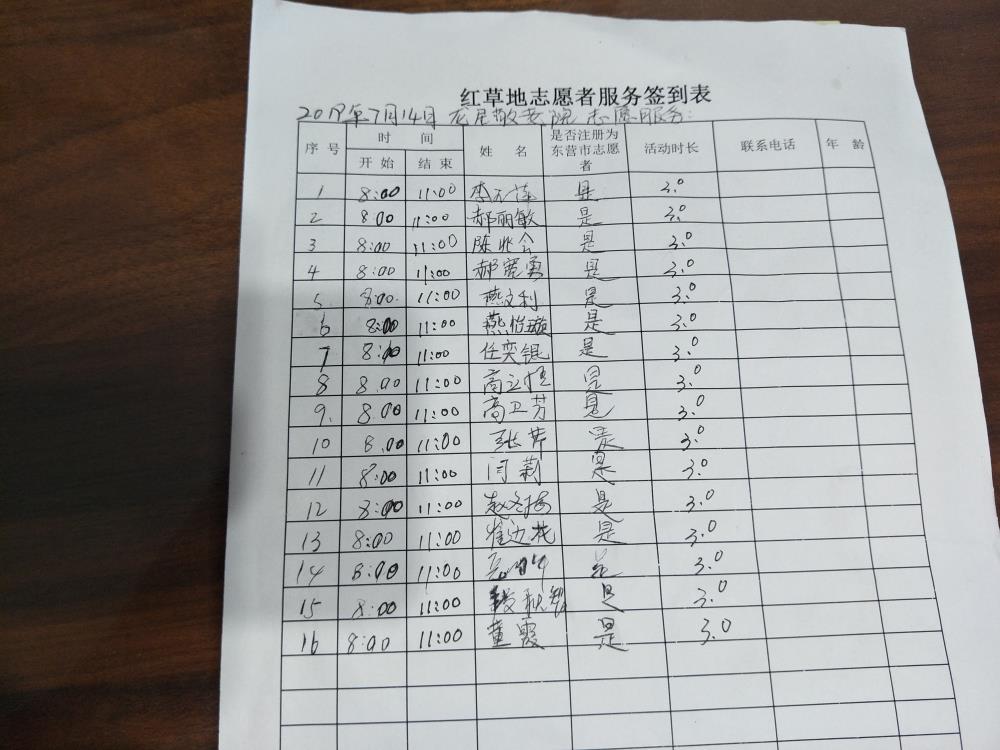 红草地志愿者服务签到表
年7月14日 龙居敬老院 志愿服务:
序号 时间 姓名 是否注册为东营市志愿者 活动时长 联系电话 年龄
开始 结束
1 8:00 11:00 李 是 3.0
2 8:00 11:00 郝丽敏 是 3.0
3 8:00 11:00 陈兆会 是 3.0
4 8:00 11:00 郝宽勇 是 3.0
5 8:00 11:00 燕文利 是 3.0
6 8:00 11:00 燕怡璇 是 3.0
7 8:00 11:00 任奕锟 是 3.0
8 8:00 11:00 高立恒 是 3.0
9. 8:00 11:00 高卫芳 是 3.0
10 8:00 11:00 张苹 是 3.0
11 8:00 11:00 闫莉 是 3.0
12 8:00 11:00 赵冬梅 是 3.0
13 8:00 11:00 崔边花 是 3.0
14 8:00 11:00 是 3.0
15 8:00 11:00 是 3.0
16 8:00 11:00 董霞 是 3.0